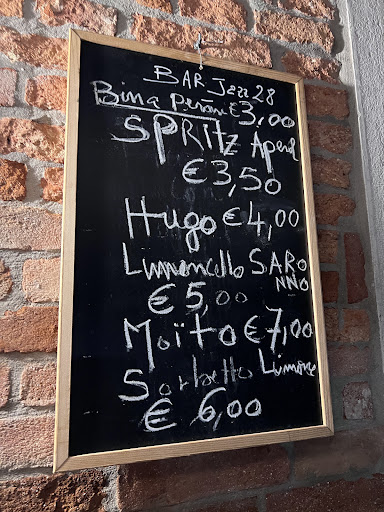 BAR Jazz 28
Birra peroni €3,00
SPRITZ Aperol
€3,50
Hugo €4,00
Limoncello SARO
NNO
€5,00
Moïto €7,00
Sorbetto Limone
€6,00